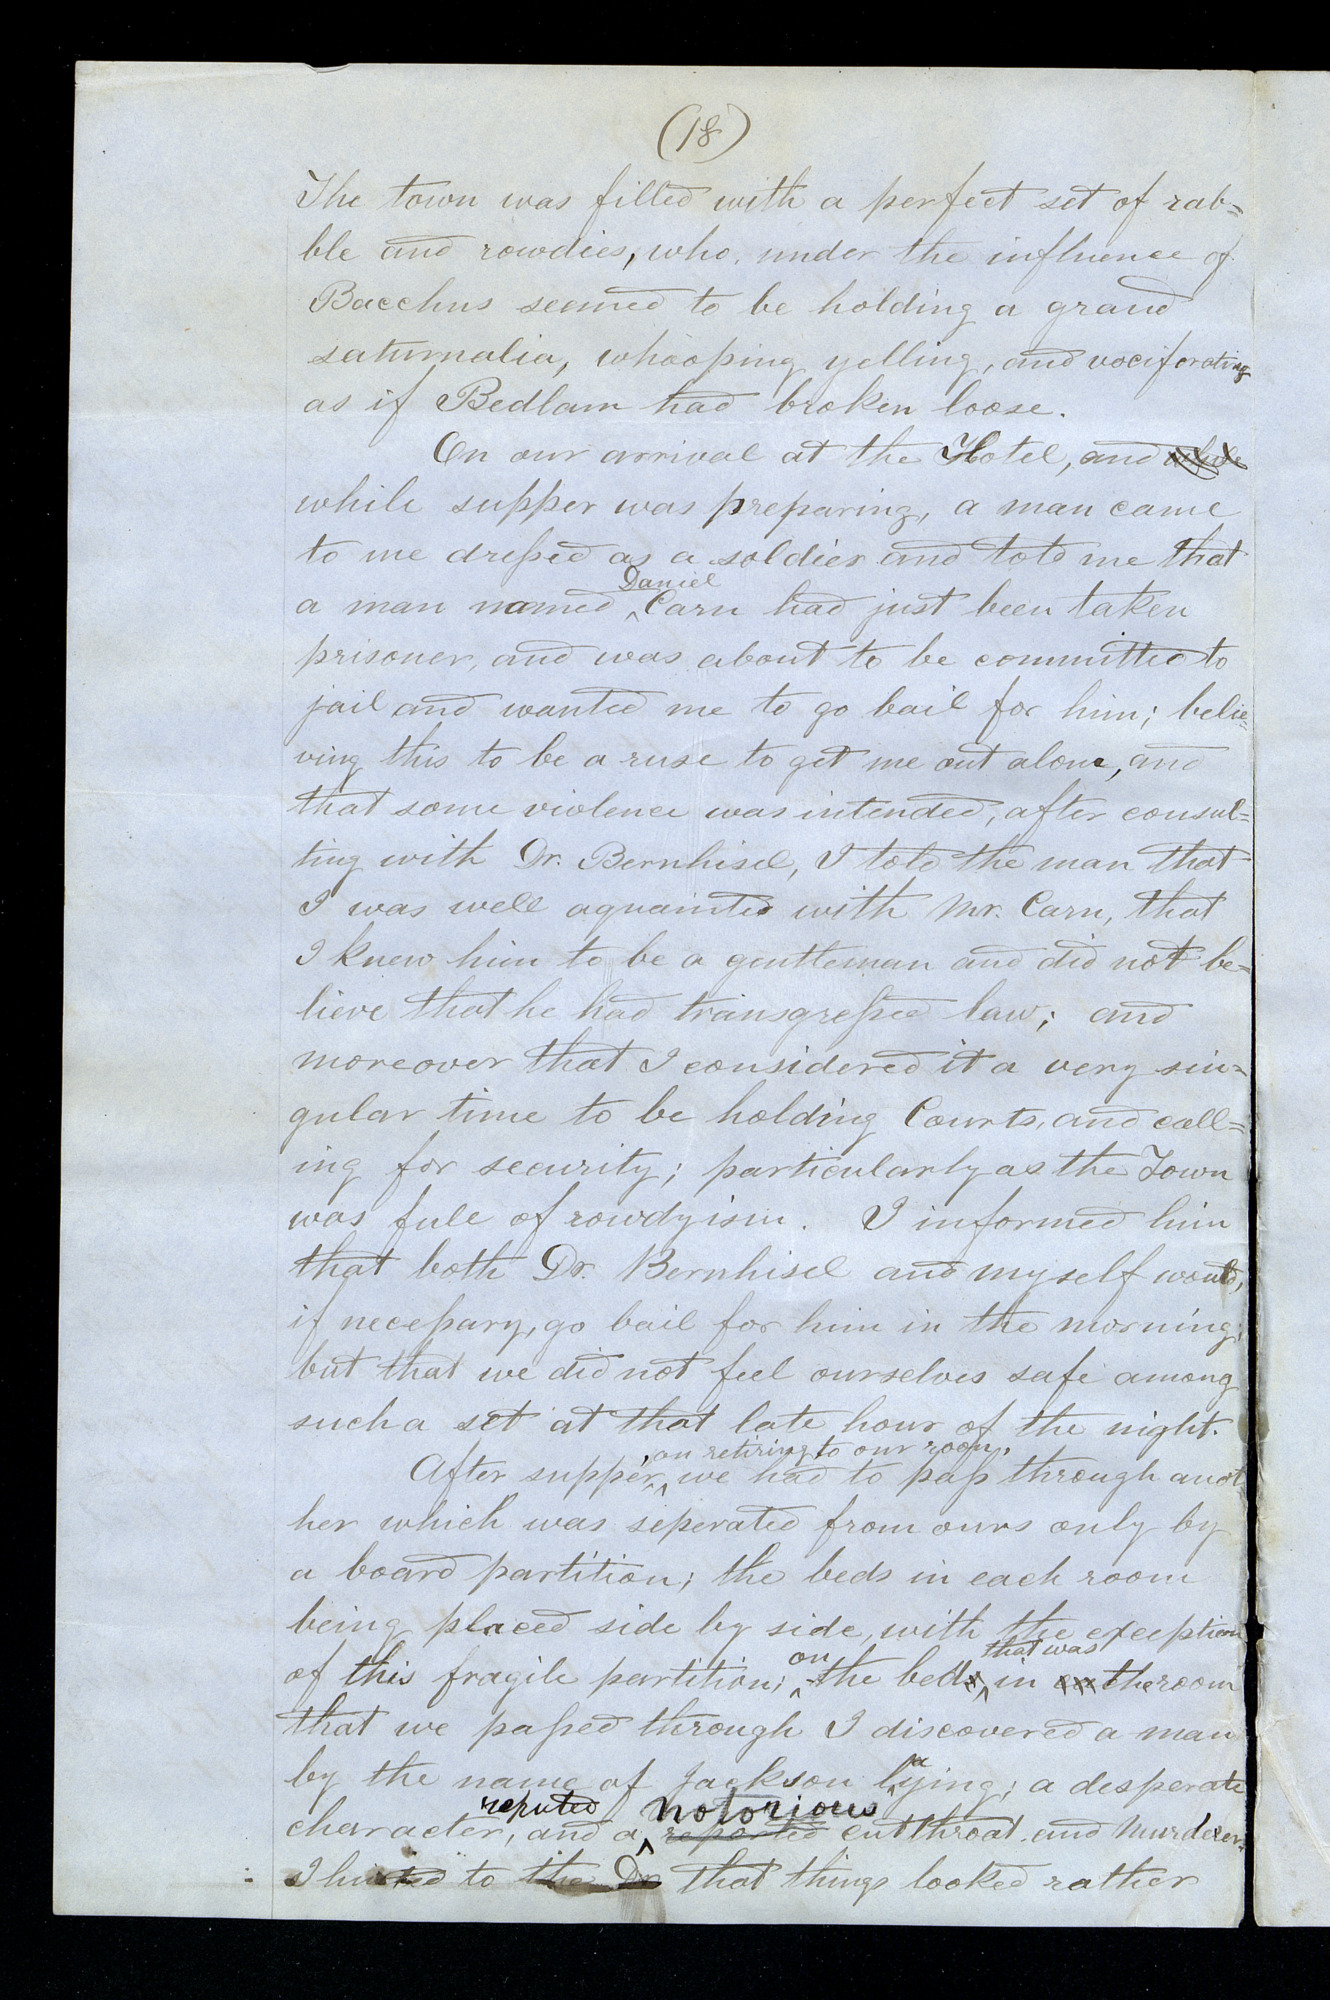 (18)
The town was filled with a perfect set of rab=
ble and rowdies, who, under the influence of
Bacchus seemed to be holding a grand
saturnalia, whooping yelling, and vociferating
as if Bedlam had broken loose.
On our arrival at the Hotel, and while
while supper was preparing, a man came
to me dressed as a soldier and told me that
Daniel
a man named ^ Carn had just been taken
prisoner, and was about to be committed to
jail and wanted me to go bail for him; belie=
ving this to be a ruse to get me out alone, and
that some violence was intended, after consul=
ting with Dr. Bernhisel, I told the man that
I was well aquainted with Mr. Carn, that
I knew him to be a gentleman and did not be=
lieve that he had transgressed law; and
moreover that I considered it a very sin=
gular time to be holding Courts, and call=
ing for security; particularly as the Town
was full of rowdyism. I informed him
that both Dr. Bernhisel and myself would,
if necessary, go bail for him in the morning;
but that we did not feel ourselves safe among
such a set at that late hour of the night.
, on retiring to our room,
After supper, ^ we had to pass through anot=
her which was seperated from ours only by
a board partition; the beds in each room
being placed side by side, with the exception
on that was
of this fragile partition; ^ the bed ^ in the room
that we passed through I discovered a man
by the name of Jackson lying; a desperate
reputed notorious
character, and a ^ reported cut throat and Murderer.
I hinted to the Dr that things looked rather